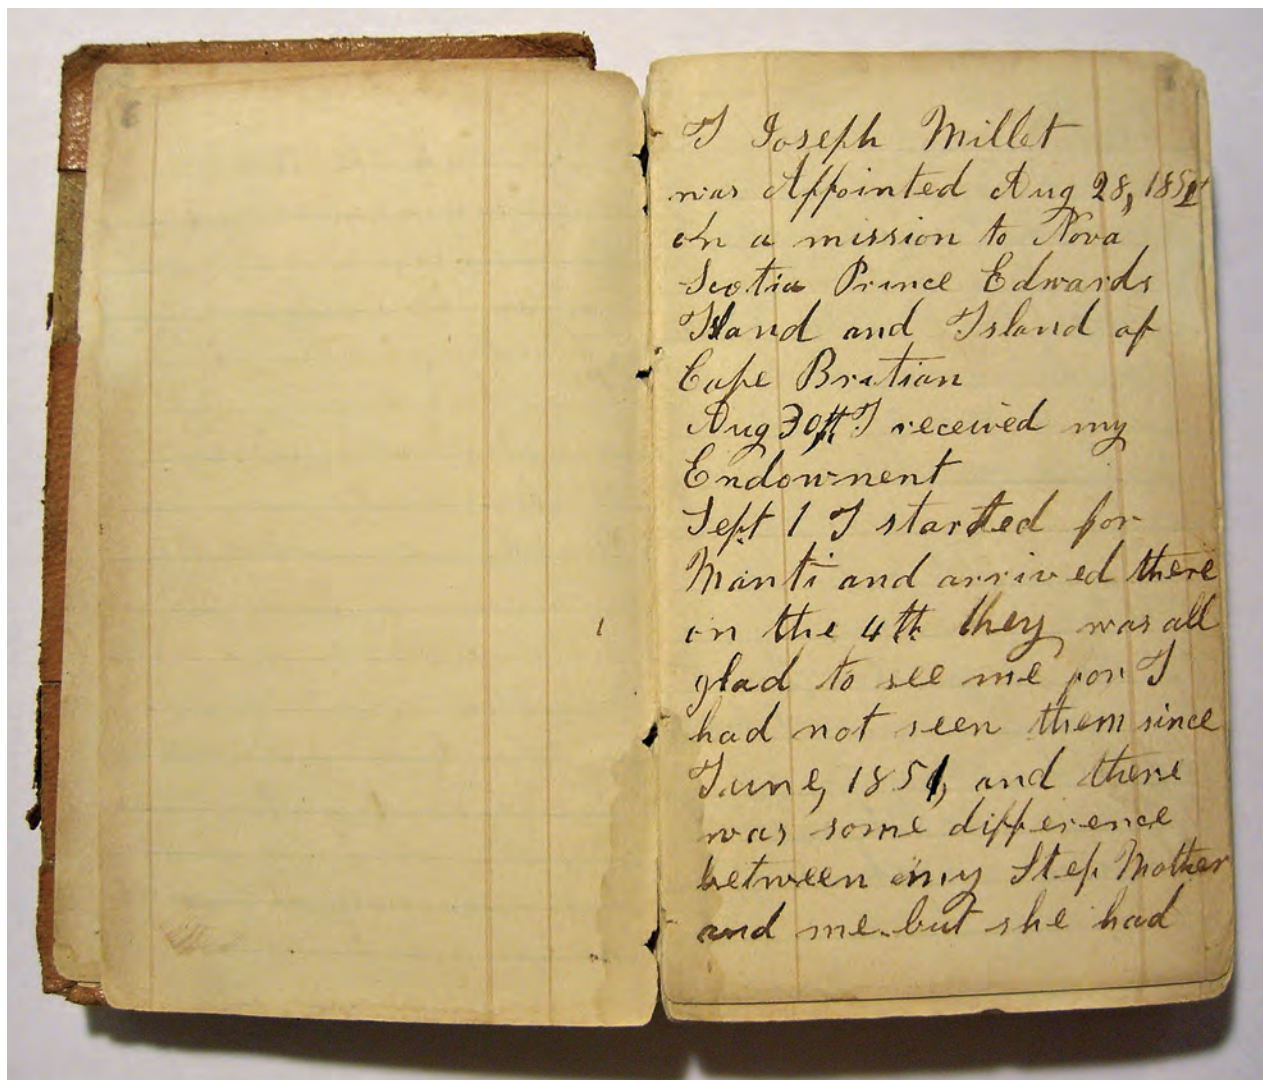 I Joseph Millet
was Appointed Aug 28, 1852
on a mission to Nova
Scotia Prince Edwards
Island and Island of
Cape Britian
Aug 30th I received my
Endowment
Sept 1 I started for
Manti and arrived there
on the 4th they was all
glad to see me for I
had not seen them since
June, 1851, and there
was some difference
between my Step Mother
and me but she had